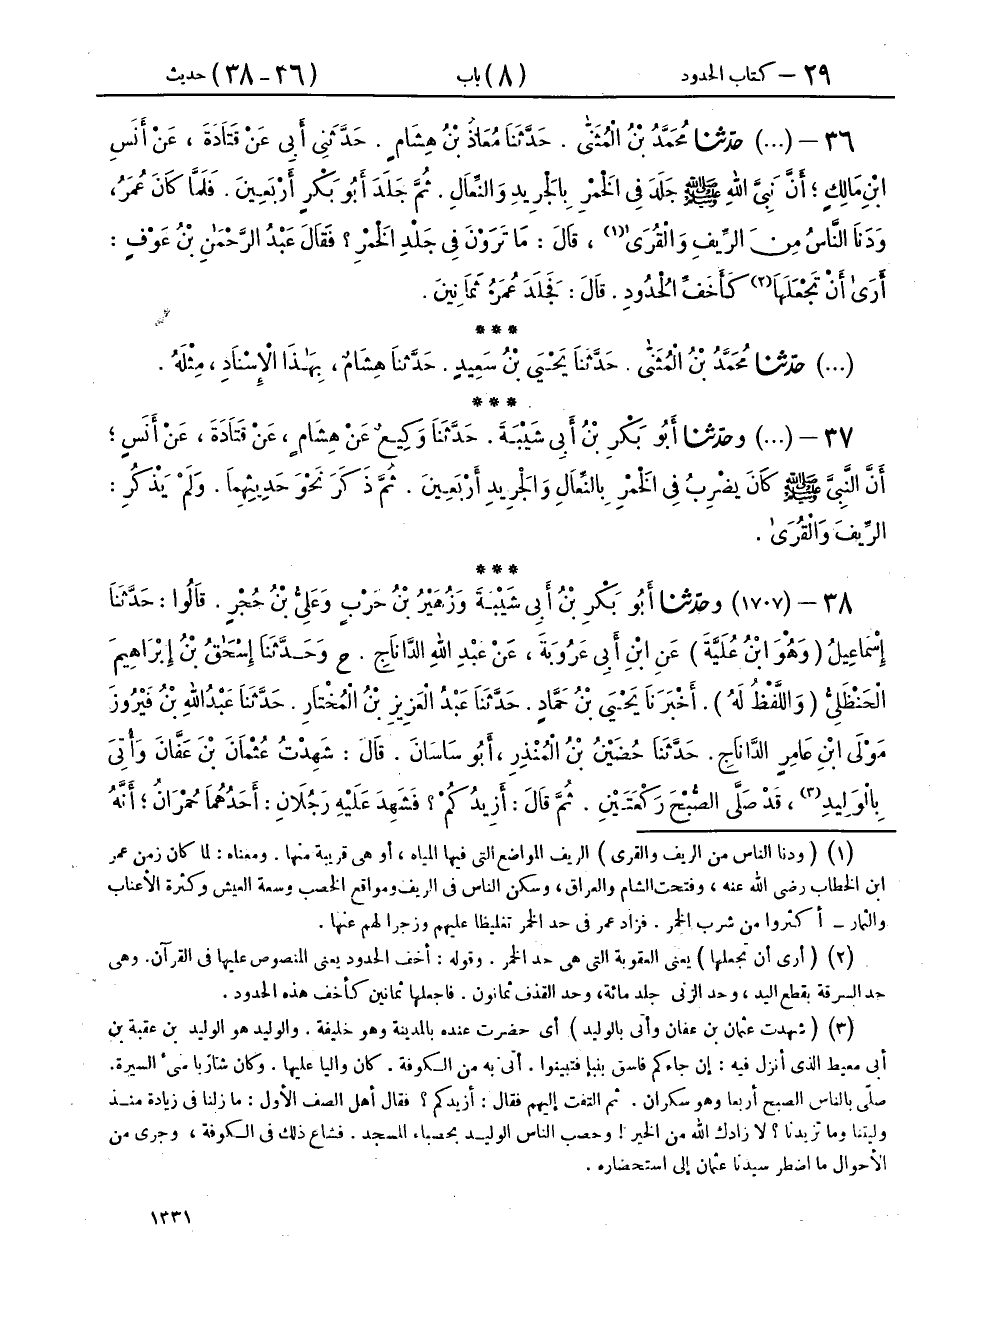 ٢٩ – كتاب الحدود (٨) باب (٣٦ – ٣٨) حديث
٣٦ – (...) حدّثنا مُحَمَّدُ بْنُ الْمُثَنَّىٰ . حَدَّثَنَا مُعَاذُ بْنُ هِشَامٍ . حَدَّثَنِى أَبِى عَنْ قَتَادَةَ ، عَنْ أَنَسِ
ابْنِ مَالِكٍ ؛ أَنَّ نَبِىَّ اللهِ ﷺ جَلَدَ فِى الْخَمْرِ بِالْجَرِيدِ وَالنِّعَالِ . ثُمَّ جَلَدَ أَبُو بَكْرٍ أَرْبَعِينَ . فَلَمَّا كَانَ عُمَرُ،
وَدَنَا النَّاسُ مِنَ الرِّيفِ وَالْقُرَى(١) ، قَالَ : مَا تَرَوْنَ فِى جَلْدِ الْخَمْرِ ؟ فَقَالَ عَبْدُ الرَّحْمَٰنِ بْنُ عَوْفٍ :
أَرَىٰ أَنْ تَجْعَلَهَا(٢) كَأَخَفِّ الْحُدُودِ . قَالَ : فَجَلَدَ عُمَرُ ثَمَانِينَ .
***
(...) حدّثنا مُحَمَّدُ بْنُ الْمُثَنَّىٰ . حَدَّثَنَا يَحْيَىٰ بْنُ سَعِيدٍ . حَدَّثَنَا هِشَامٌ ، بِهَٰذَا الْإِسْنَادِ ، مِثْلَهُ .
***
٣٧ – (...) وحدّثنا أَبُو بَكْرِ بْنُ أَبِى شَيْبَةَ . حَدَّثَنَا وَكِيعٌ عَنْ هِشَامٍ ، عَنْ قَتَادَةَ ، عَنْ أَنَسٍ ؛
أَنَّ النَّبِىَّ ﷺ كَانَ يَضْرِبُ فِى الْخَمْرِ بِالنِّعَالِ وَالْجَرِيدِ أَرْبَعِينَ . ثُمَّ ذَكَرَ نَحْوَ حَدِيثِهِمَا . وَلَمْ يَذْكُرِ :
الرِّيفَ وَالْقُرَىٰ .
***
٣٨ – (١٧٠٧) وحدّثنا أَبُو بَكْرِ بْنُ أَبِى شَيْبَةَ وَزُهَيْرُ بْنُ حَرْبٍ وَعَلِىُّ بْنُ حُجْرٍ . قَالُوا : حَدَّثَنَا
إِسْمَاعِيلُ (وَهُوَ ابْنُ عُلَيَّةَ) عَنِ ابْنِ أَبِى عَرُوبَةَ ، عَنْ عَبْدِ اللهِ الدَّانَاجِ . ح وَحَدَّثَنَا إِسْحَٰقُ بْنُ إِبْرَاهِيمَ
الْحَنْظَلِىُّ (وَاللَّفْظُ لَهُ) . أَخْبَرَنَا يَحْيَىٰ بْنُ حَمَّادٍ . حَدَّثَنَا عَبْدُ الْعَزِيزِ بْنُ الْمُخْتَارِ . حَدَّثَنَا عَبْدُاللهِ بْنُ فَيْرُوزَ
مَوْلَى ابْنِ عَامِرٍ الدَّانَاجُ . حَدَّثَنَا حُضَيْنُ بْنُ الْمُنْذِرِ ، أَبُو سَاسَانَ . قَالَ : شَهِدْتُ عُثْمَانَ بْنَ عَفَّانَ وَأُتِىَ
بِالْوَلِيدِ(٣) ، قَدْ صَلَّى الصُّبْحَ رَكْعَتَيْنِ . ثُمَّ قَالَ : أَزِيدُكُمْ ؟ فَشَهِدَ عَلَيْهِ رَجُلَانِ : أَحَدُهُمَا حُمْرَانُ ؛ أَنَّهُ
(١) (ودنا الناس من الريف والقرى) الريف المواضع التى فيها المياه ، أو هى قريبة منها . ومعناه : لما كان زمن عمر
ابن الخطاب رضى الله عنه ، وفتحت الشام والعراق، وسكن الناس فى الريف ومواقع الخصب وسعة العيش وكثرة الأعناب
والثمار – أكثروا من شرب الخمر . فزاد عمر فى حد الخمر تغليظا عليهم وزجرا لهم عنها .
(٢) (أرى أن تجعلها) يعنى العقوبة التى هى حد الخمر . وقوله : أخف الحدود يعنى المنصوص عليها فى القرآن. وهى
حد السرقة بقطع اليد ، وحد الزنى جلد مائة، وحد القذف ثمانون . فاجعلها ثمانين كأخف هذه الحدود .
(٣) (شهدت عثمان بن عفان وأتى بالوليد) أى حضرت عنده بالمدينة وهو خليفة . والوليد هو الوليد بن عقبة بن
أبى معيط الذى أنزل فيه : إن جاءكم فاسق بنبإ فتبينوا . أتى به من الكوفة . كان واليا عليها . وكان شارَبا سىء السيرة.
صلّى بالناس الصبح أربعا وهو سكران . ثم التفت إليهم فقال : أزيدكم ؟ فقال أهل الصف الأول : ما زلنا فى زيادة منذ
وليتنا وما تزيدنا ؟ لا زادك الله من الخير ! وحصب الناس الوليد بحصباء المسجد . فشاع ذلك فى الكوفة ، وجرى من
الأحوال ما اضطر سيدنا عثمان إلى استحضاره .
١٣٣١